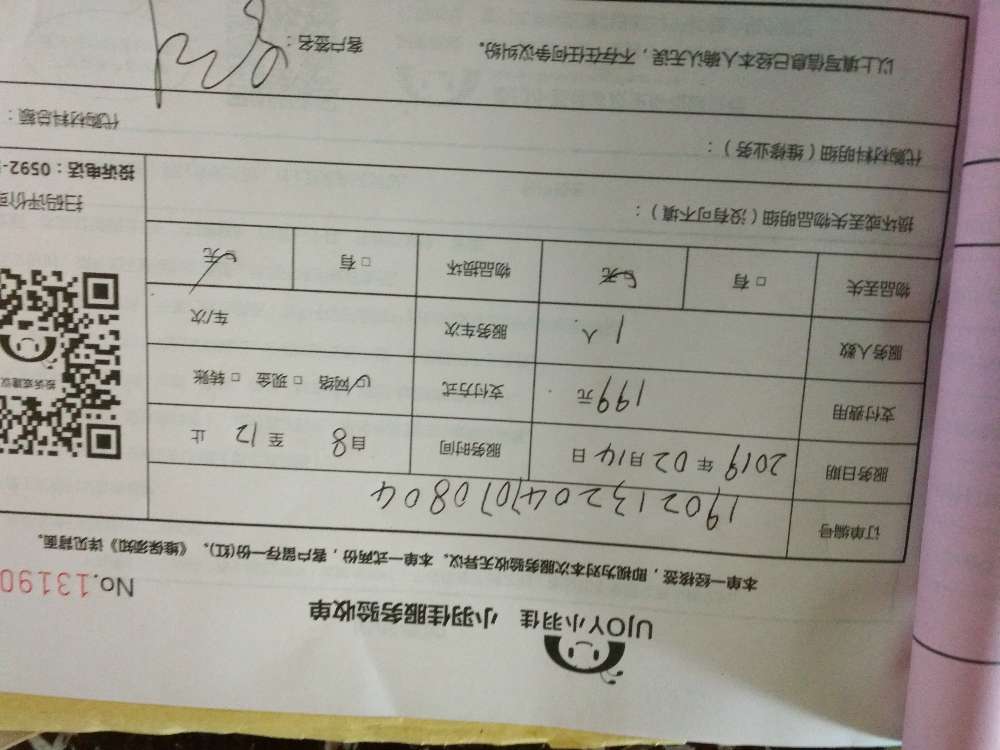 UJOY小羽佳 小羽佳服务验收单
No.13190
本单一经核签，即视为对本次服务验收无异议。本单一式两份，客户留存一份(红)。《维保须知》详见背面。
订单编号 190213204070804
服务日期 2019年02月14日 服务时间 自8 至12 止
支付费用 199元 支付方式 ☑网络 □现金 □转账
服务人数 1人 服务车次 车/次
物品丢失 □有 ☑无 物品损坏 □有 ☑无
投诉或建议
扫码评价或
投诉电话：0592-
损坏或丢失物品明细（没有可不填）：
代购材料明细（维修业务）：
代购材料总额：
以上填写信息已经本人确认无误，不存在任何争议纠纷。 客户签名：